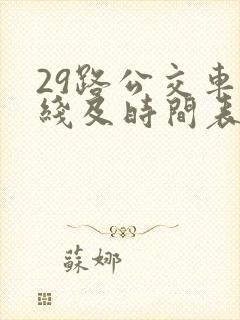 29路公交車
綫及時間表
蘇娜